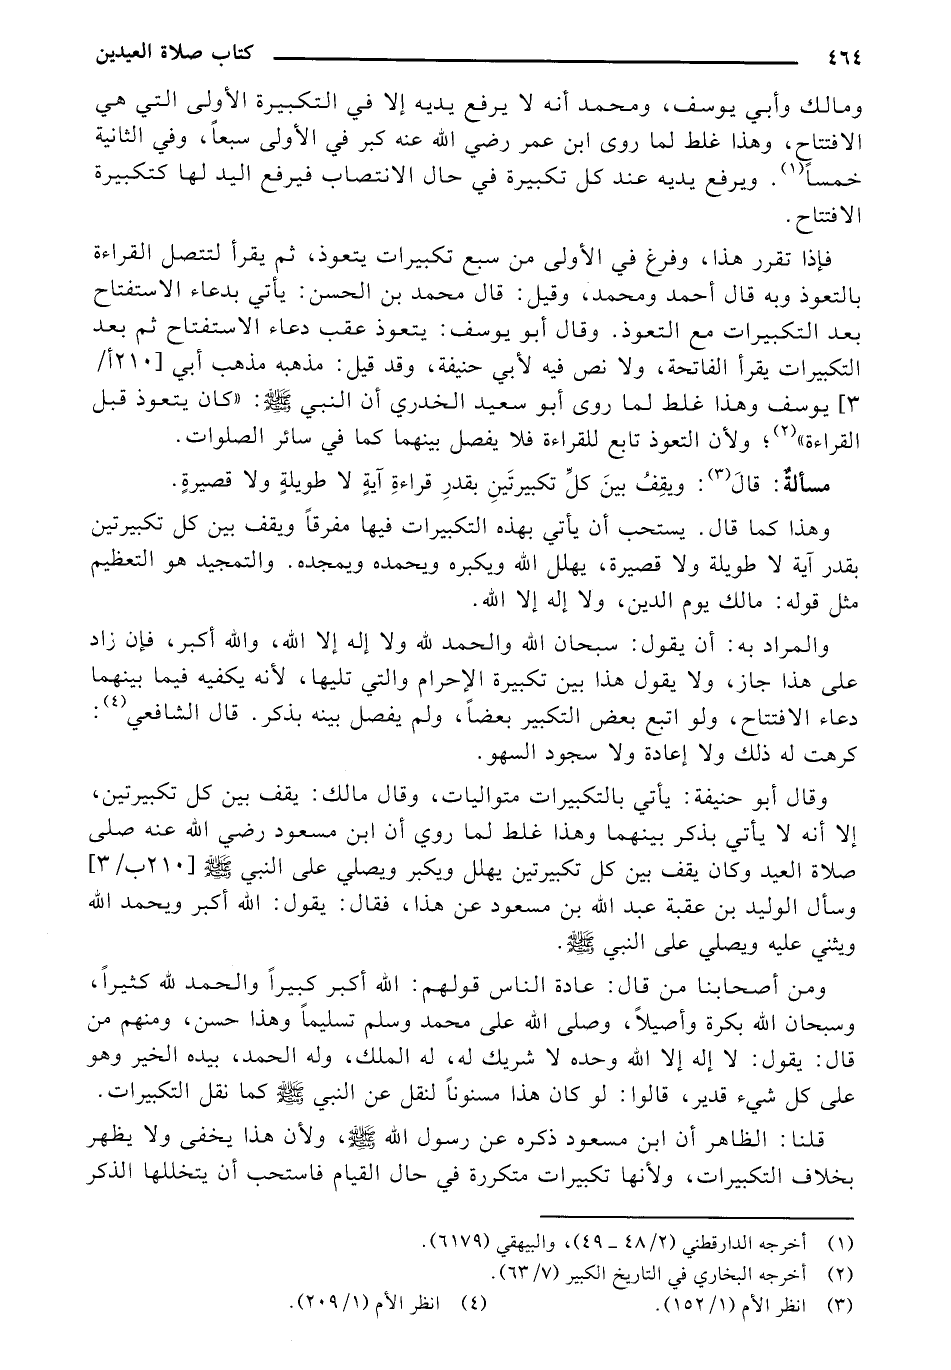 ٤٦٤ كتاب صلاة العيدين
ومالك وأبي يوسف، ومحمد أنه لا يرفع يديه إلا في التكبيرة الأولى التي هي
الافتتاح، وهذا غلط لما روى ابن عمر رضي الله عنه كبر في الأولى سبعاً، وفي الثانية
خمساً(١). ويرفع يديه عند كل تكبيرة في حال الانتصاب فيرفع اليد لها كتكبيرة
الافتتاح.
فإذا تقرر هذا، وفرغ في الأولى من سبع تكبيرات يتعوذ، ثم يقرأ لتتصل القراءة
بالتعوذ وبه قال أحمد ومحمد، وقيل: قال محمد بن الحسن: يأتي بدعاء الاستفتاح
بعد التكبيرات مع التعوذ. وقال أبو يوسف: يتعوذ عقب دعاء الاستفتاح ثم بعد
التكبيرات يقرأ الفاتحة، ولا نص فيه لأبي حنيفة، وقد قيل: مذهبه مذهب أبي [٢١٠أ/
٣] يوسف وهذا غلط لما روى أبو سعيد الخدري أن النبي ﷺ: «كان يتعوذ قبل
القراءة»(٢)؛ ولأن التعوذ تابع للقراءة فلا يفصل بينهما كما في سائر الصلوات.
مسألةٌ: قالَ(٣): ويقِفُ بينَ كلِّ تكبيرتَينِ بقدرِ قراءةِ آيةٍ لا طويلةٍ ولا قصيرةٍ.
وهذا كما قال. يستحب أن يأتي بهذه التكبيرات فيها مفرقاً ويقف بين كل تكبيرتين
بقدر آية لا طويلة ولا قصيرة، يهلل الله ويكبره ويحمده ويمجده. والتمجيد هو التعظيم
مثل قوله: مالك يوم الدين، ولا إله إلا الله.
والمراد به: أن يقول: سبحان الله والحمد لله ولا إله إلا الله، والله أكبر، فإن زاد
على هذا جاز، ولا يقول هذا بين تكبيرة الإحرام والتي تليها، لأنه يكفيه فيما بينهما
دعاء الافتتاح، ولو اتبع بعض التكبير بعضاً، ولم يفصل بينه بذكر. قال الشافعي(٤):
كرهت له ذلك ولا إعادة ولا سجود السهو.
وقال أبو حنيفة: يأتي بالتكبيرات متواليات، وقال مالك: يقف بين كل تكبيرتين،
إلا أنه لا يأتي بذكر بينهما وهذا غلط لما روي أن ابن مسعود رضي الله عنه صلى
صلاة العيد وكان يقف بين كل تكبيرتين يهلل ويكبر ويصلي على النبي ﷺ [٢١٠ب/٣]
وسأل الوليد بن عقبة عبد الله بن مسعود عن هذا، فقال: يقول: الله أكبر ويحمد الله
ويثني عليه ويصلي على النبي ﷺ.
ومن أصحابنا من قال: عادة الناس قولهم: الله أكبر كبيراً والحمد لله كثيراً،
وسبحان الله بكرة وأصيلاً، وصلى الله على محمد وسلم تسليماً وهذا حسن، ومنهم من
قال: يقول: لا إله إلا الله وحده لا شريك له، له الملك، وله الحمد، بيده الخير وهو
على كل شيء قدير، قالوا: لو كان هذا مسنوناً لنقل عن النبي ﷺ كما نقل التكبيرات.
قلنا: الظاهر أن ابن مسعود ذكره عن رسول الله ﷺ، ولأن هذا يخفى ولا يظهر
بخلاف التكبيرات، ولأنها تكبيرات متكررة في حال القيام فاستحب أن يتخللها الذكر
(١) أخرجه الدارقطني (٢/ ٤٨ ـ ٤٩)، والبيهقي (٦١٧٩).
(٢) أخرجه البخاري في التاريخ الكبير (٧/ ٦٣).
(٣) انظر الأم (١/ ١٥٢). (٤) انظر الأم (١/ ٢٠٩).